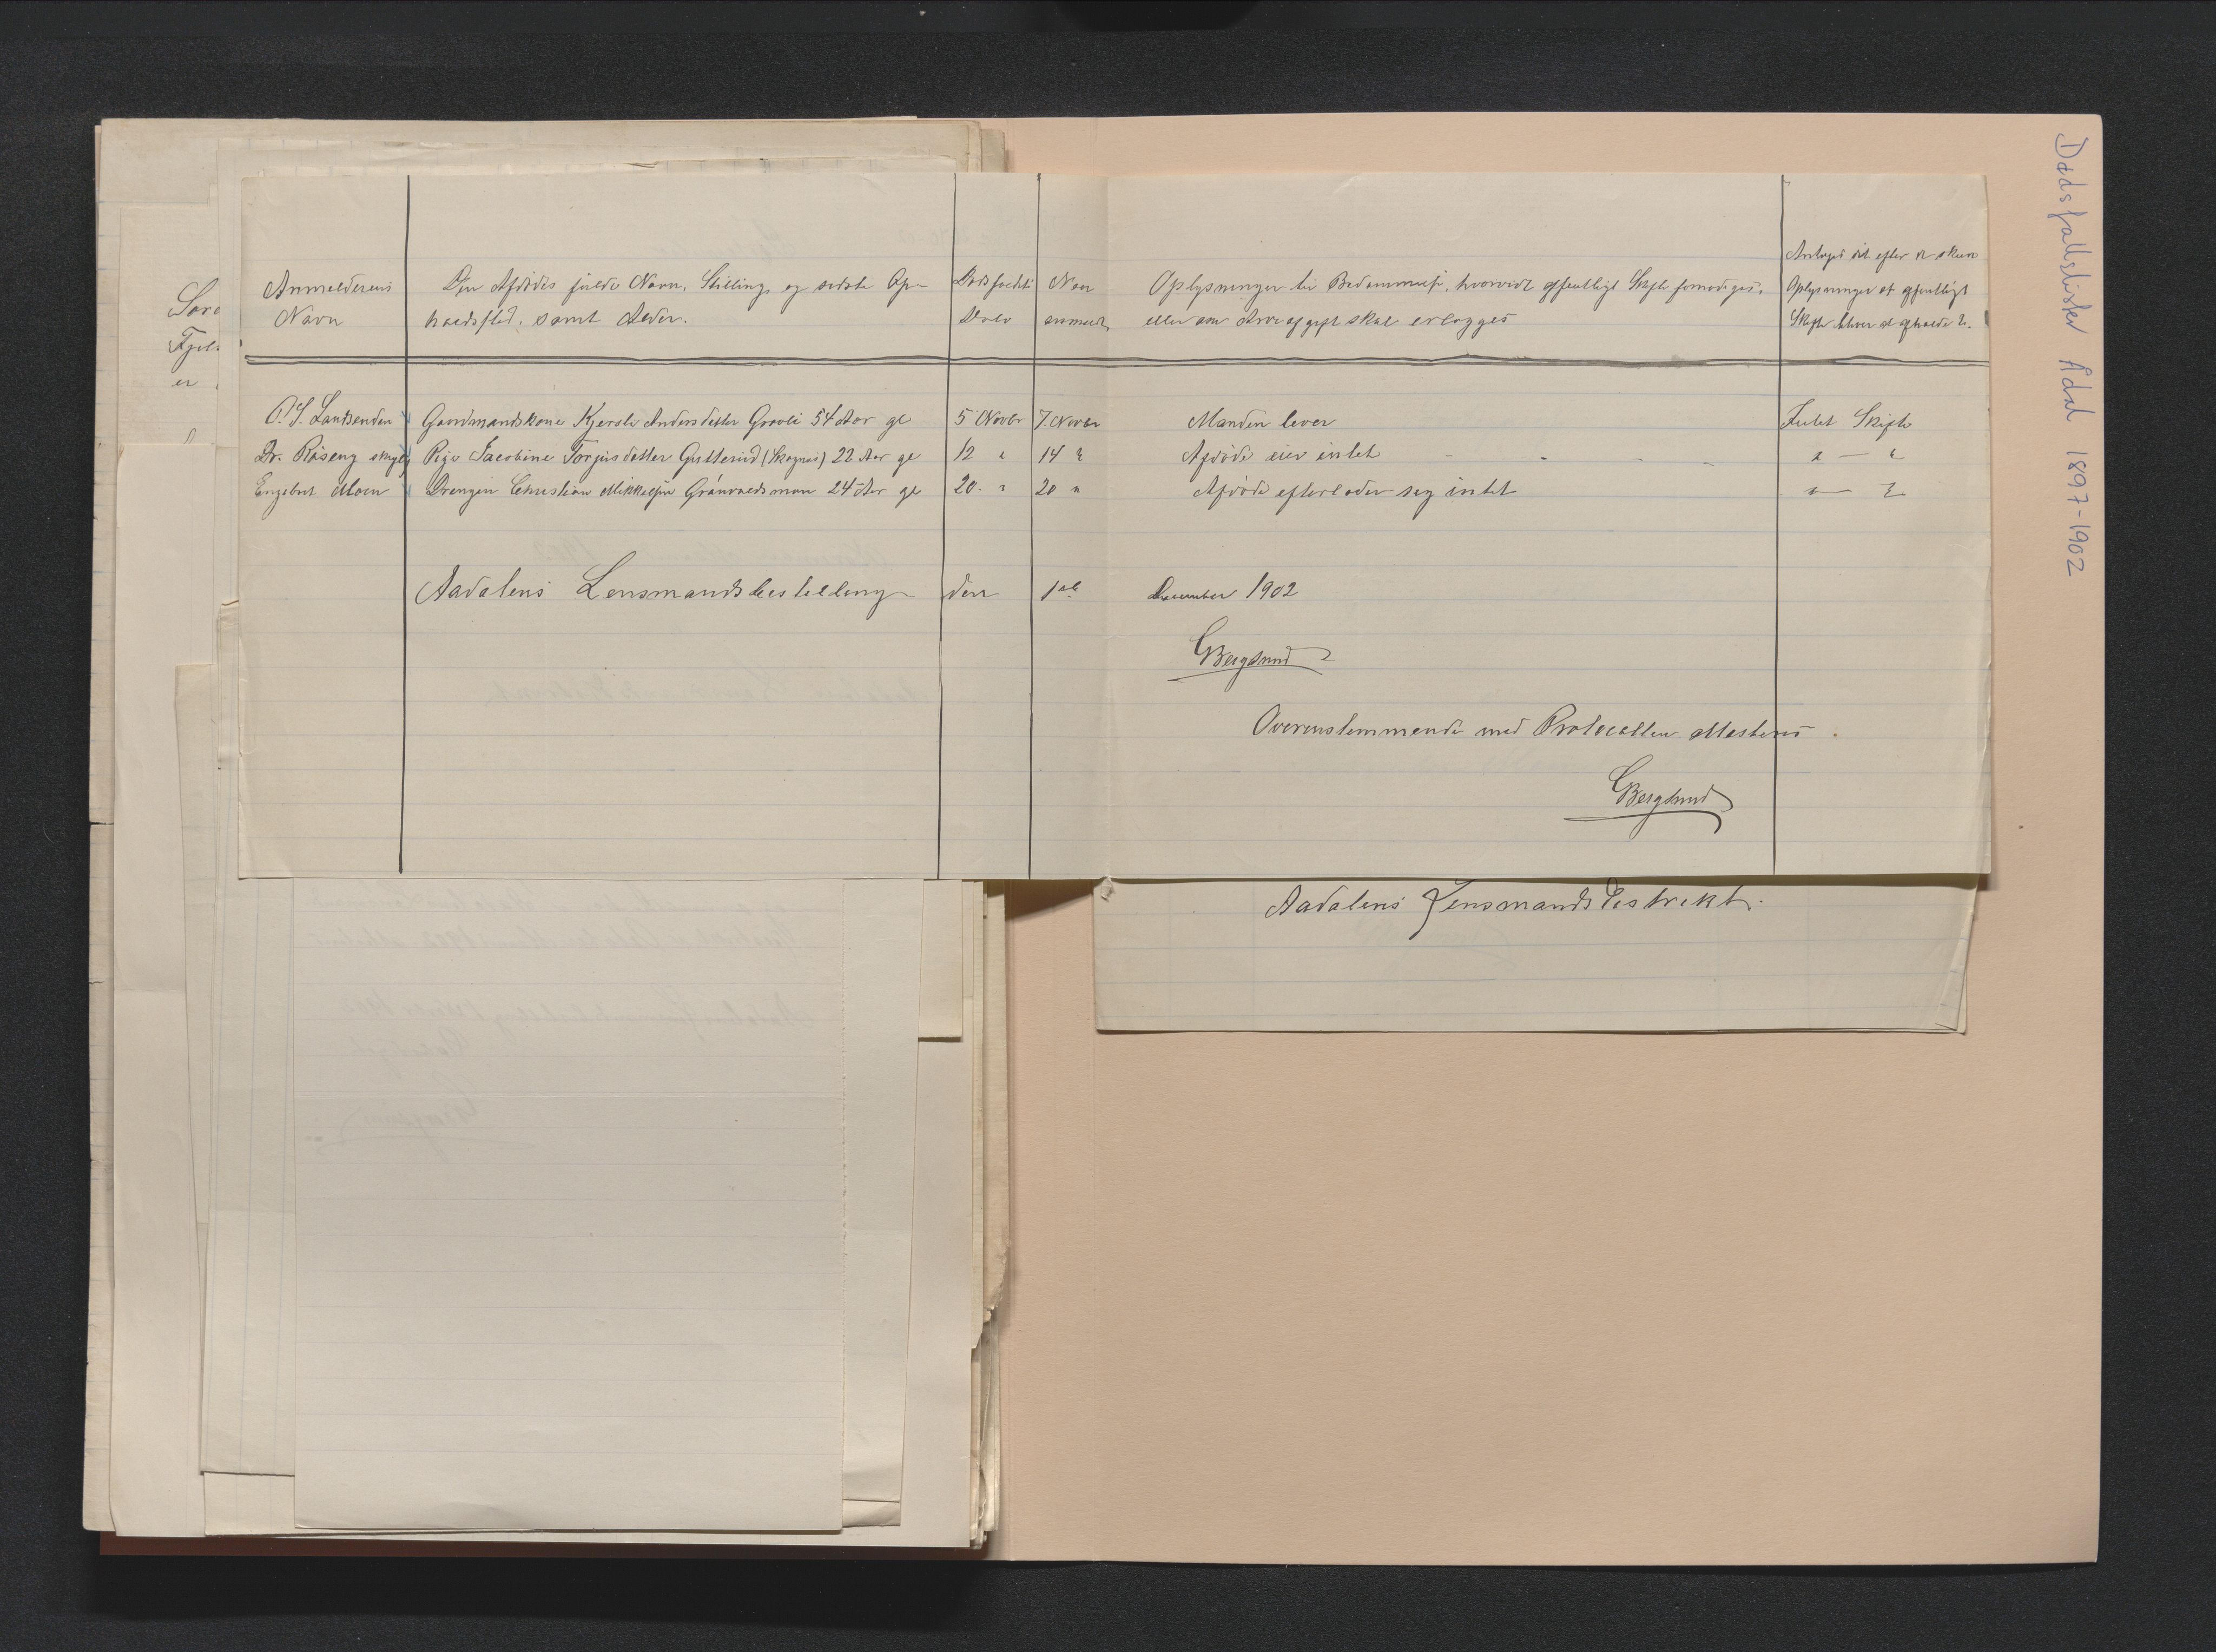 Dødsfallslister Ådal 1897-1902
Anmelderens
Navn
Den Afdødes fulde Navn, Stilling og sidste Op-
holdssted, samt Alder.
Dødsfaldets
Dato
Naar
anmeldt
Oplysninger til Bedømmelse, hvorvidt offentligt Skifte fornødiges,
eller om Arveafgift skal erlægges
Antages det efter de skeede
Oplysninger at offentligt
Skifte bliver at afholde?
Gaardmandskone Kjersti Andersdatter Gravli 54 Aar gl
5 Novbr
7. Novbr
Manden lever
Intet Skifte
Pige Jacobine Torjusdatter Gulterud (Skagnæs) 22 Aar gl
12 "
14 "
Afdøde eier intet - - - -
" — "
Engebret Moen
Drengen Christian Mikkelsen Grånvoldsmoen 24 Aar gl
20. "
20 "
Afdøde efterlader sig intet
" — "
Aadalens Lensmandsbestilling den 1ste December 1902
GBergsund
Overensstemmende med Protocollen attesteres.
GBergsund
Aadalens Lensmandsdistrikt.